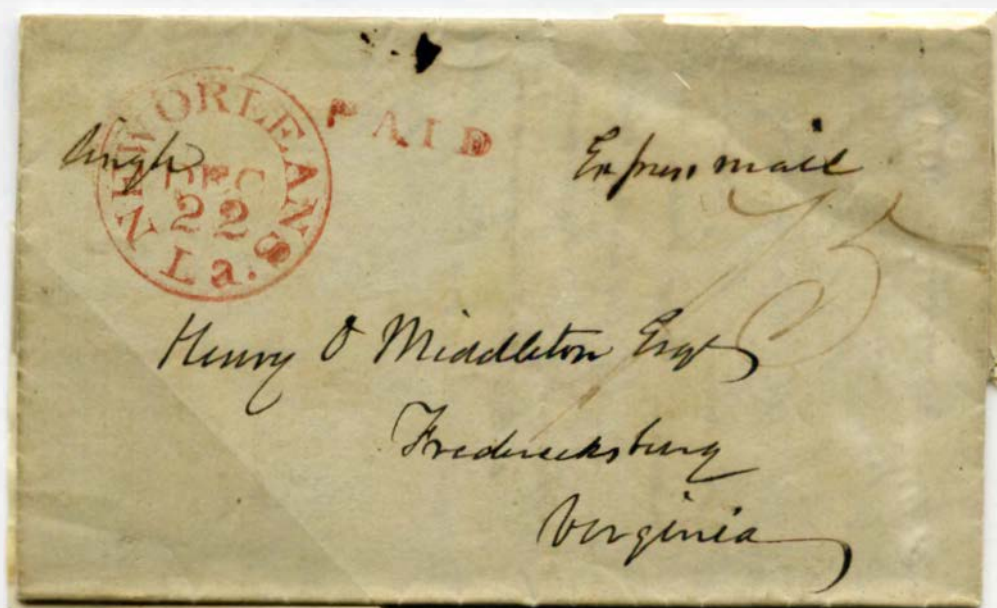 NEW ORLEANS La.
DEC
22
PAID
Single
Express mail
75
Henry O Middleton Esqr
Fredericksburg
Virginia